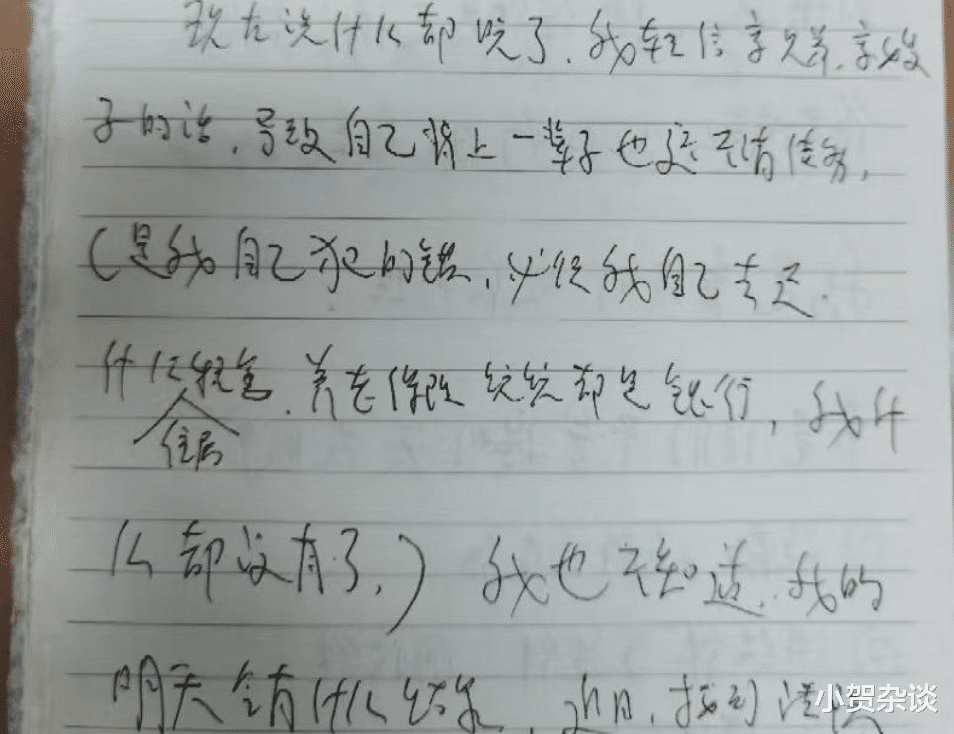 现在说什么都晚了.我轻信
子的话,导致自己背上一辈子也还不清债务,
(是我自己犯的错,必须我自己去还.
什么租金.养老保险统统都是银行,我什
住房
么都没有了,)我也不知道.我的
明天会有什么结果,近日,接到法院
小贺杂谈